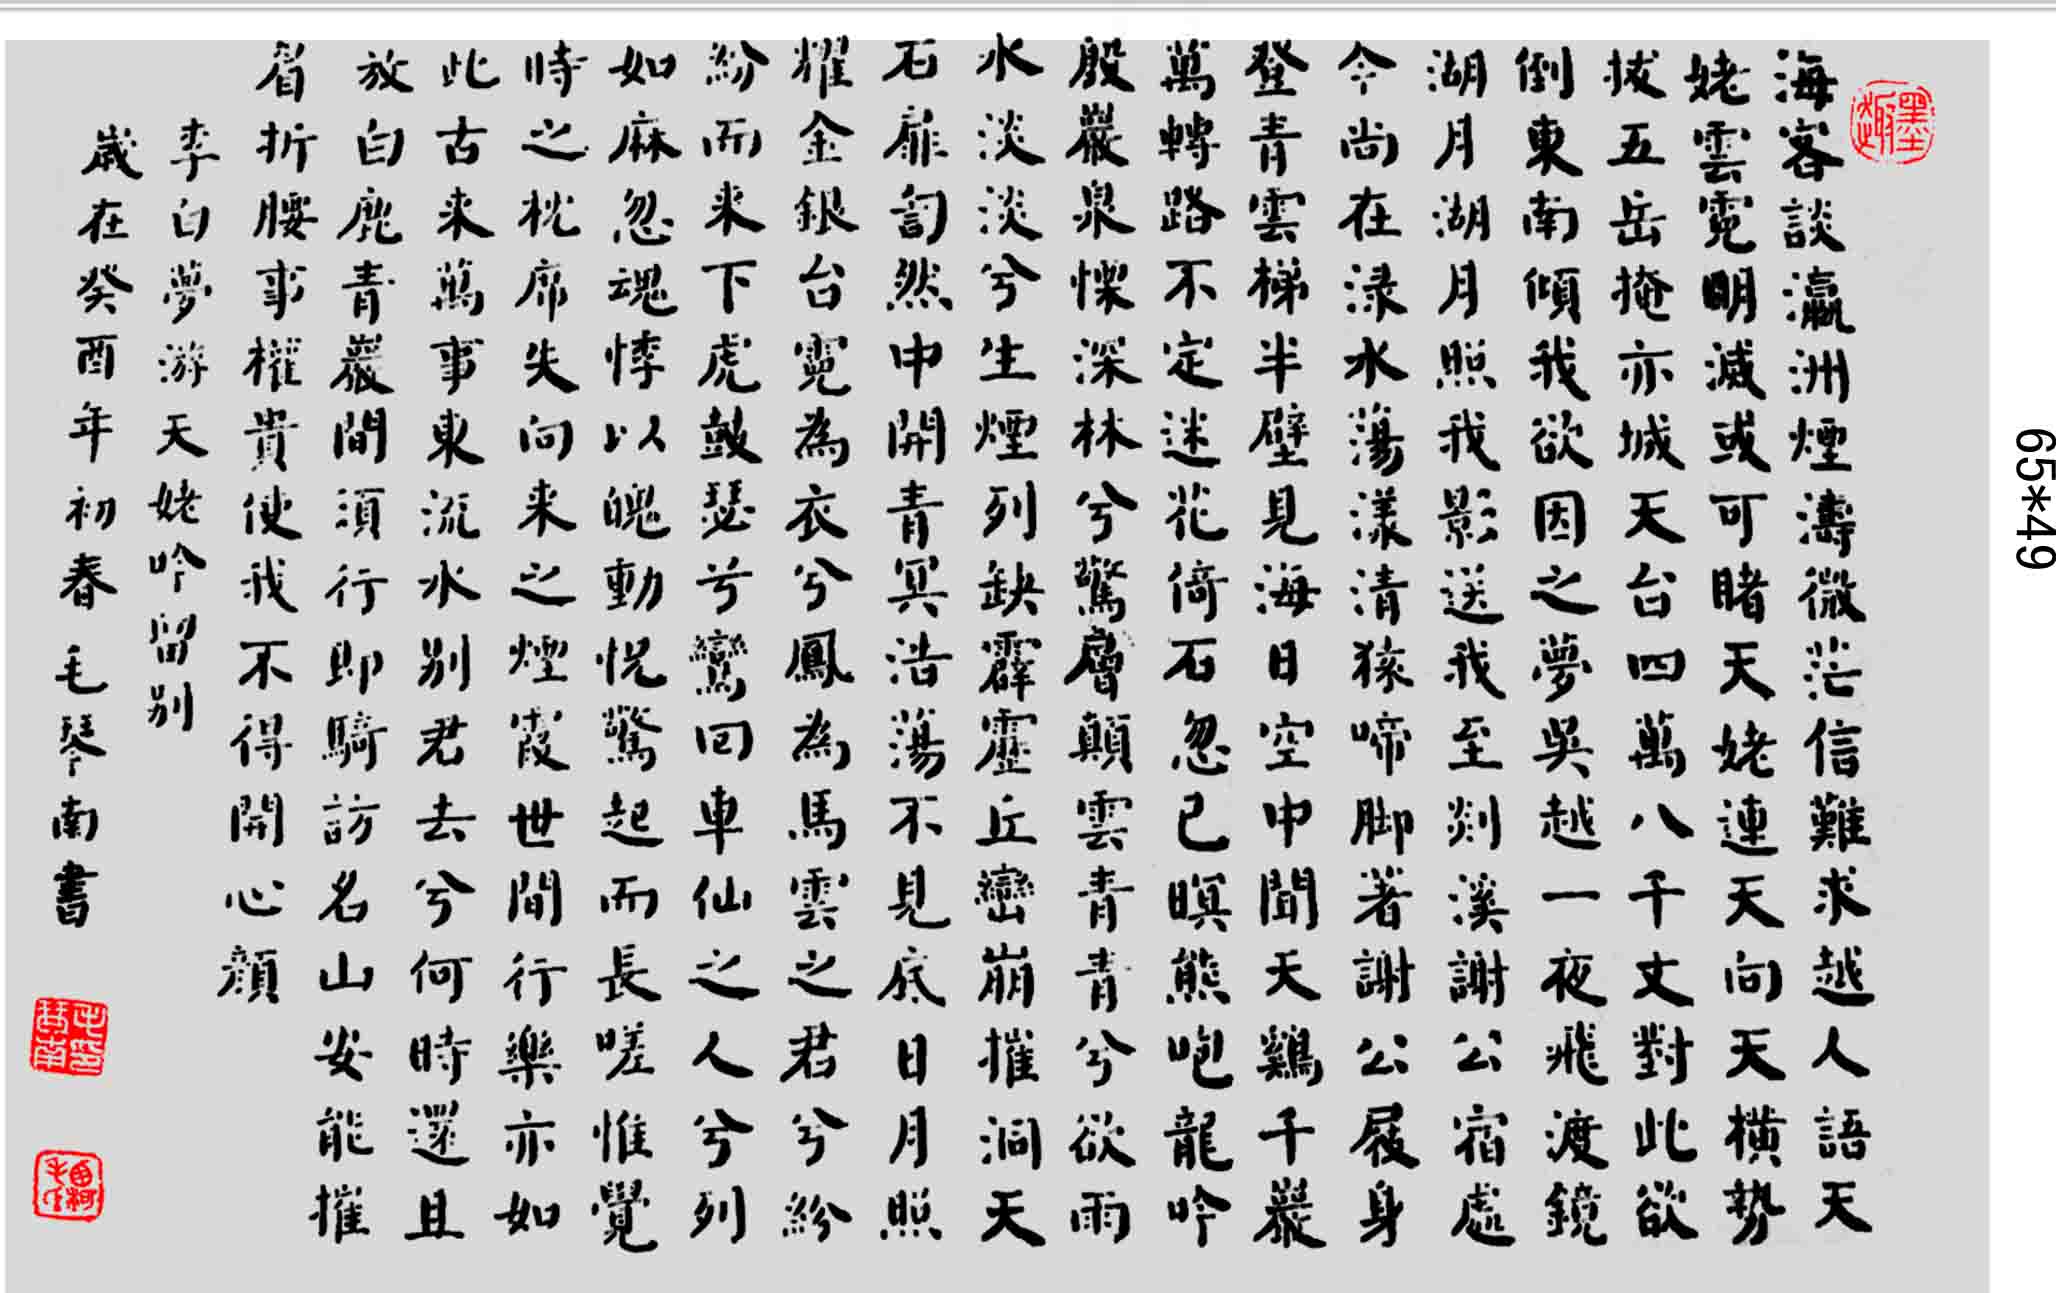 墨趣
海客談瀛洲煙濤微茫信難求越人語天
姥雲霓明滅或可睹天姥連天向天橫勢
拔五岳掩亦城天台四萬八千丈對此欲
倒東南傾我欲因之夢吳越一夜飛渡鏡
湖月湖月照我影送我至剡溪謝公宿處
今尚在渌水蕩漾清猿啼脚著謝公屐身
登青雲梯半壁見海日空中聞天鷄千巖
萬轉路不定迷花倚石忽已暝熊咆龍吟
殷巖泉慄深林兮驚層顛雲青青兮欲雨
水淡淡兮生煙列缺霹靂丘巒崩摧洞天
石扉訇然中開青冥浩蕩不見底日月照
耀金銀台霓為衣兮鳳為馬雲之君兮紛
紛而来下虎鼓瑟兮鸞回車仙之人兮列
如麻忽魂悸以魄動怳驚起而長嗟惟覺
時之枕席失向来之煙霞世間行樂亦如
此古来萬事東流水别君去兮何時還且
放白鹿青巖間須行即騎訪名山安能摧
眉折腰事權貴使我不得開心顏
李白夢游天姥吟留别
歲在癸酉年初春毛琴南書
毛琴南印
65*49